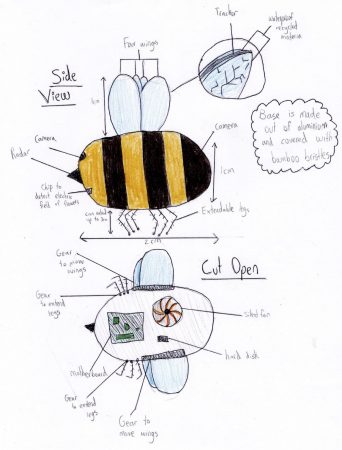 Tracker
waterproof
recycled
material
Four wings
Side
View
1cm
Camera
Camera
Radar
Base is made
out of aluminium
and covered with
bamboo bristles
Chip to
detect electric
field of flowers
1cm
can extend
up to 2m
Extendable legs
2cm
Gear
to move
wings
Cut Open
Gear
to extend
legs
silent fan
motherboard
hard disk
Gear
to extend
legs
Gear to
move wings